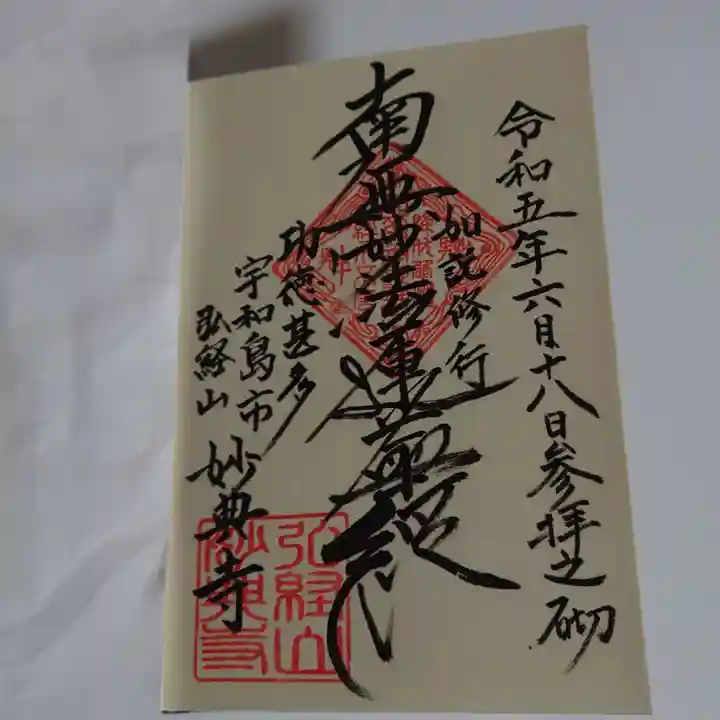 令和五年六月十八日参拝之砌
如説修行
南無妙法蓮華経
功徳甚多
宇和島市
弘経山 妙典寺
弘経山
妙典寺